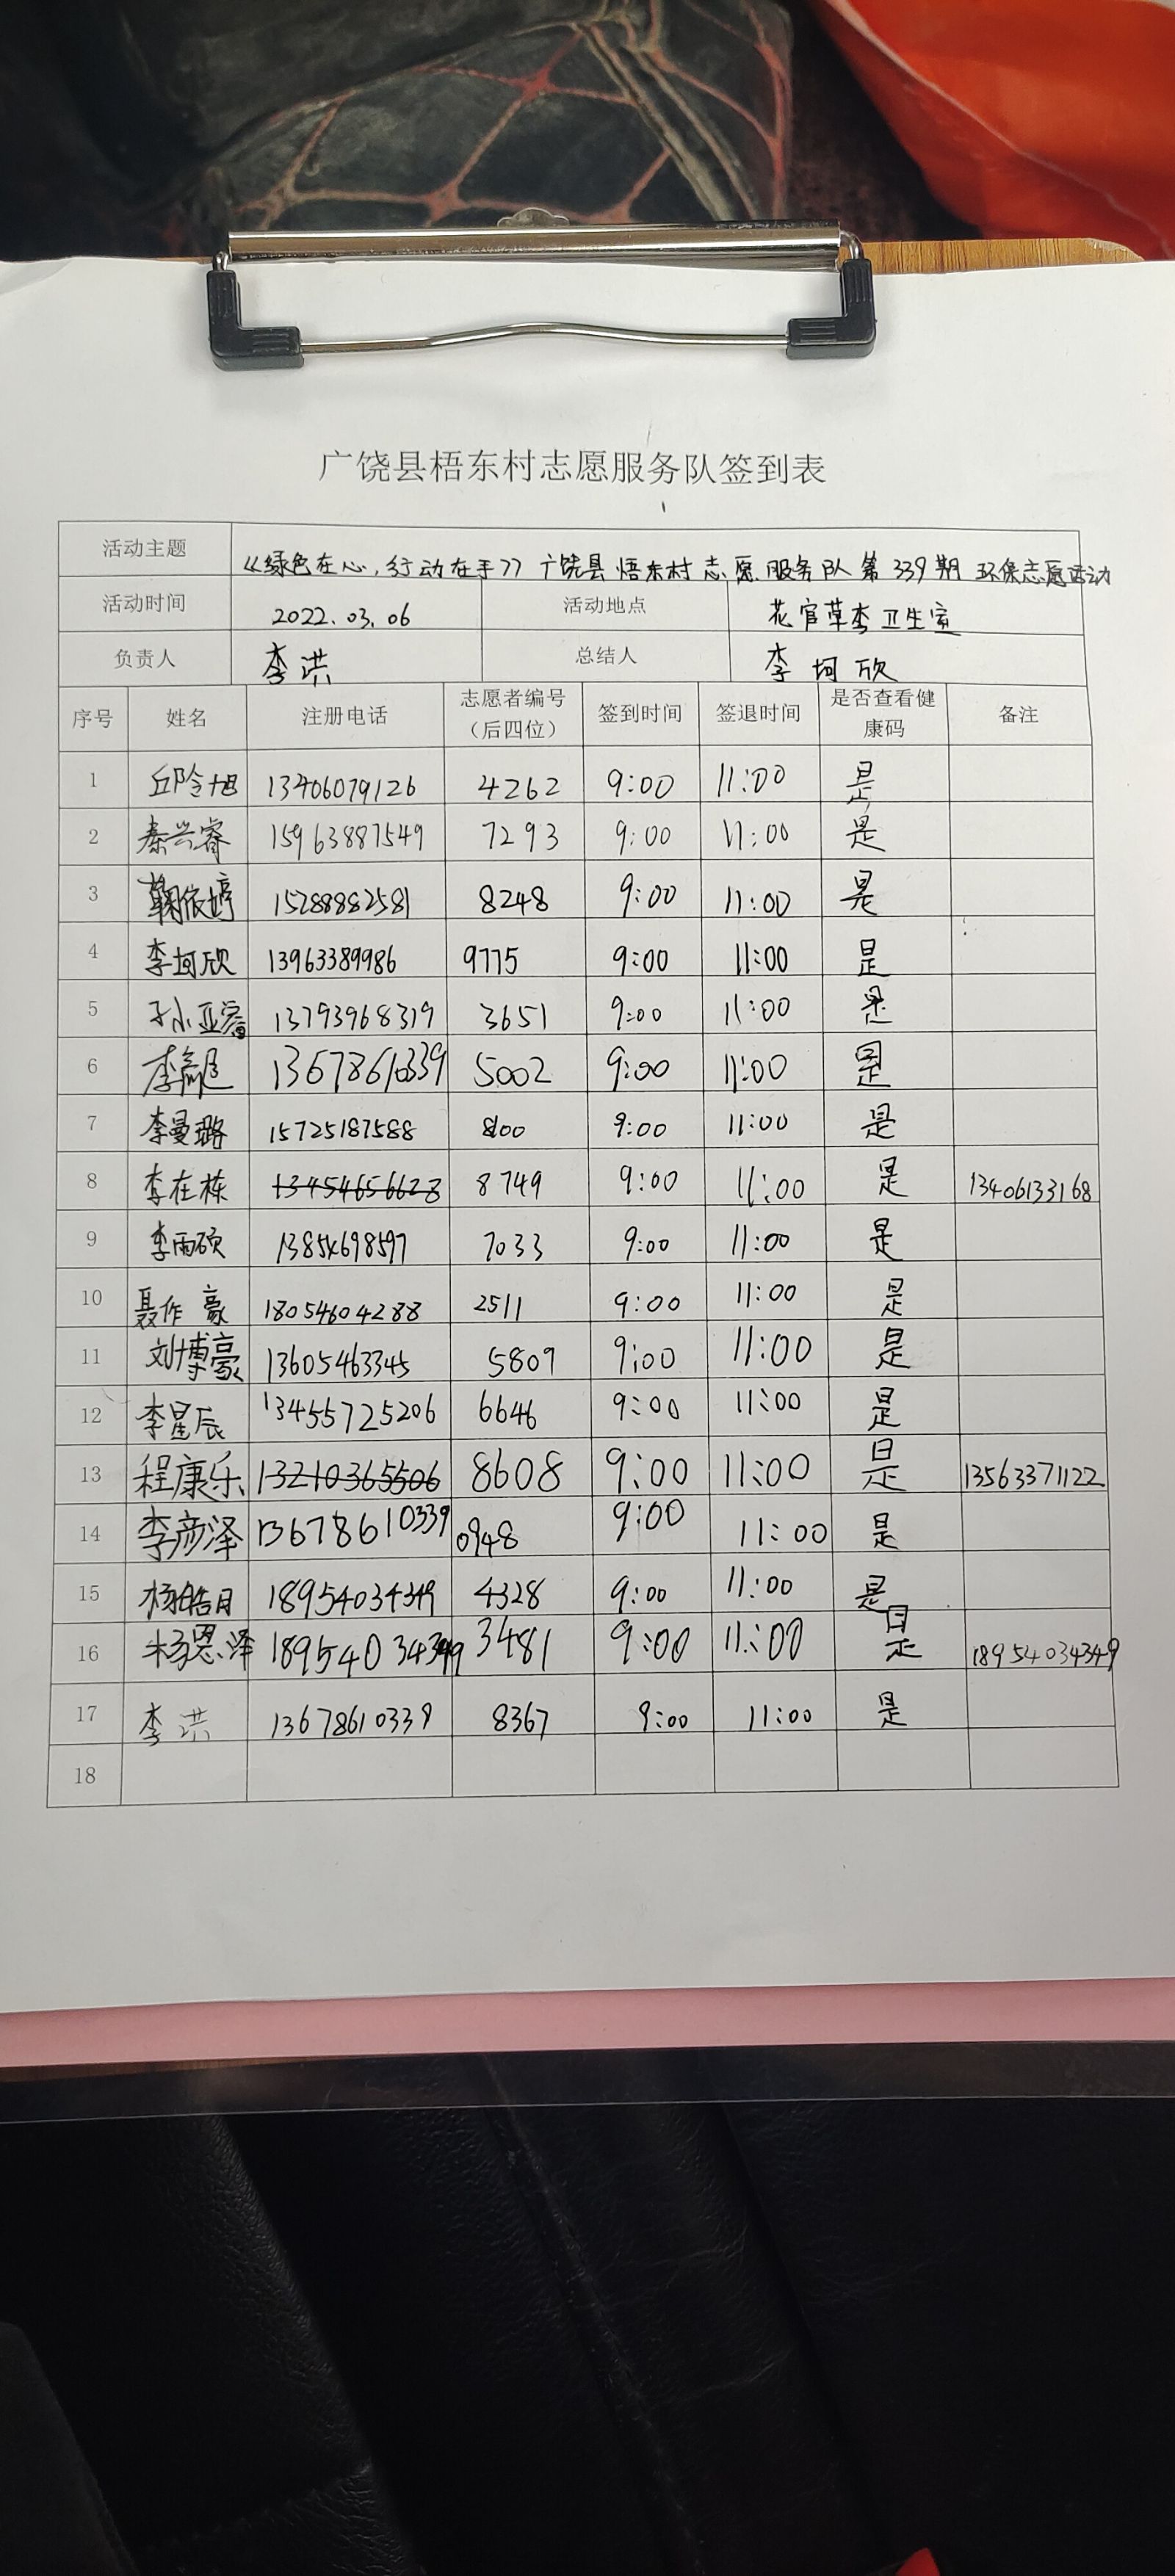 广饶县梧东村志愿服务队签到表
活动主题 《绿色在心，行动在手》广饶县梧东村志愿服务队第339期环保志愿活动
活动时间 2022.03.06 活动地点 花官草李卫生室
负责人 李洪 总结人 李坷欣
序号 姓名 注册电话 志愿者编号（后四位） 签到时间 签退时间 是否查看健康码 备注
1 旭 13406079126 4262 9:00 11:00 是
2 秦兴睿 15963887549 7293 9:00 11:00 是
3 鞠依婷 15288882581 8248 9:00 11:00 是
4 李坷欣 13963389986 9775 9:00 11:00 是
5 孙亚睿 13793968319 3651 9:00 11:00 是
6 李 13678610339 5002 9:00 11:00 是
7 李曼璐 15725187588 8100 9:00 11:00 是
8 李在栋 13454656628 8749 9:00 11:00 是 13406133168
9 李雨硕 13854698597 7033 9:00 11:00 是
10 聂作豪 18054604288 2511 9:00 11:00 是
11 刘博豪 13605463345 5809 9:00 11:00 是
12 李星辰 13455725206 6646 9:00 11:00 是
13 程康乐 13210365506 8608 9:00 11:00 是 13563371122
14 李彦泽 13678610339 0948 9:00 11:00 是
15 杨皓月 18954034349 4328 9:00 11:00 是
16 杨恩泽 18954034349 3481 9:00 11:00 是 18954034349
17 李洪 13678610339 8367 9:00 11:00 是
18